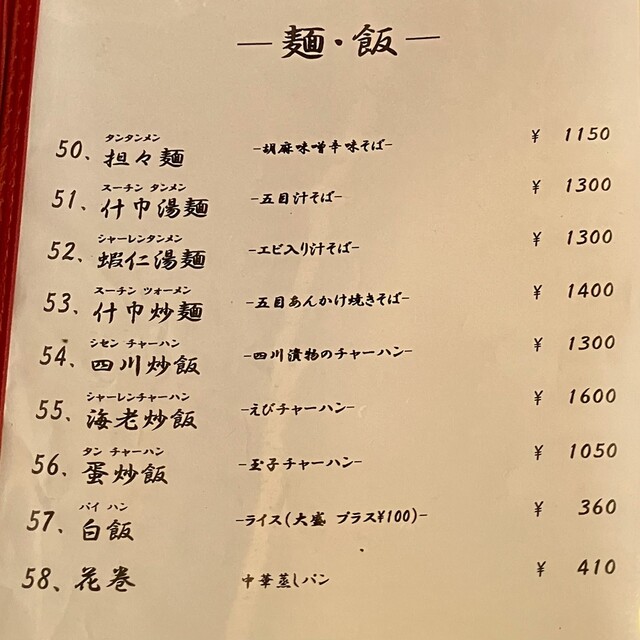 —麺・飯—
タンタンメン
50、担々麺 -胡麻味噌辛味そば- ¥ 1150
スーチン タンメン
51、什巾湯麺 -五目汁そば- ¥ 1300
シャーレンタンメン
52、蝦仁湯麺 -エビ入り汁そば- ¥ 1300
スーチン ツォーメン
53、什巾炒麺 -五目あんかけ焼きそば- ¥ 1400
シセン チャーハン
54、四川炒飯 -四川漬物のチャーハン- ¥ 1300
シャーレンチャーハン
55、海老炒飯 -えびチャーハン- ¥ 1600
タン チャーハン
56、蛋炒飯 -玉子チャーハン- ¥ 1050
パイ ハン
57、白飯 -ライス(大盛 プラス¥100)- ¥ 360
58、花巻 中華蒸しパン ¥ 410